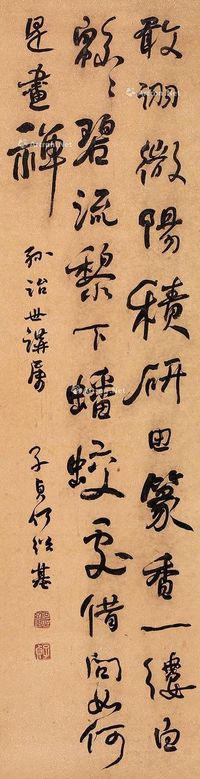 敢詡微陽積研田篆香一縷白
緜〻碧流黎下蟠蛟處借問如何
是畫禪
詒世講屬
子貞何紹基